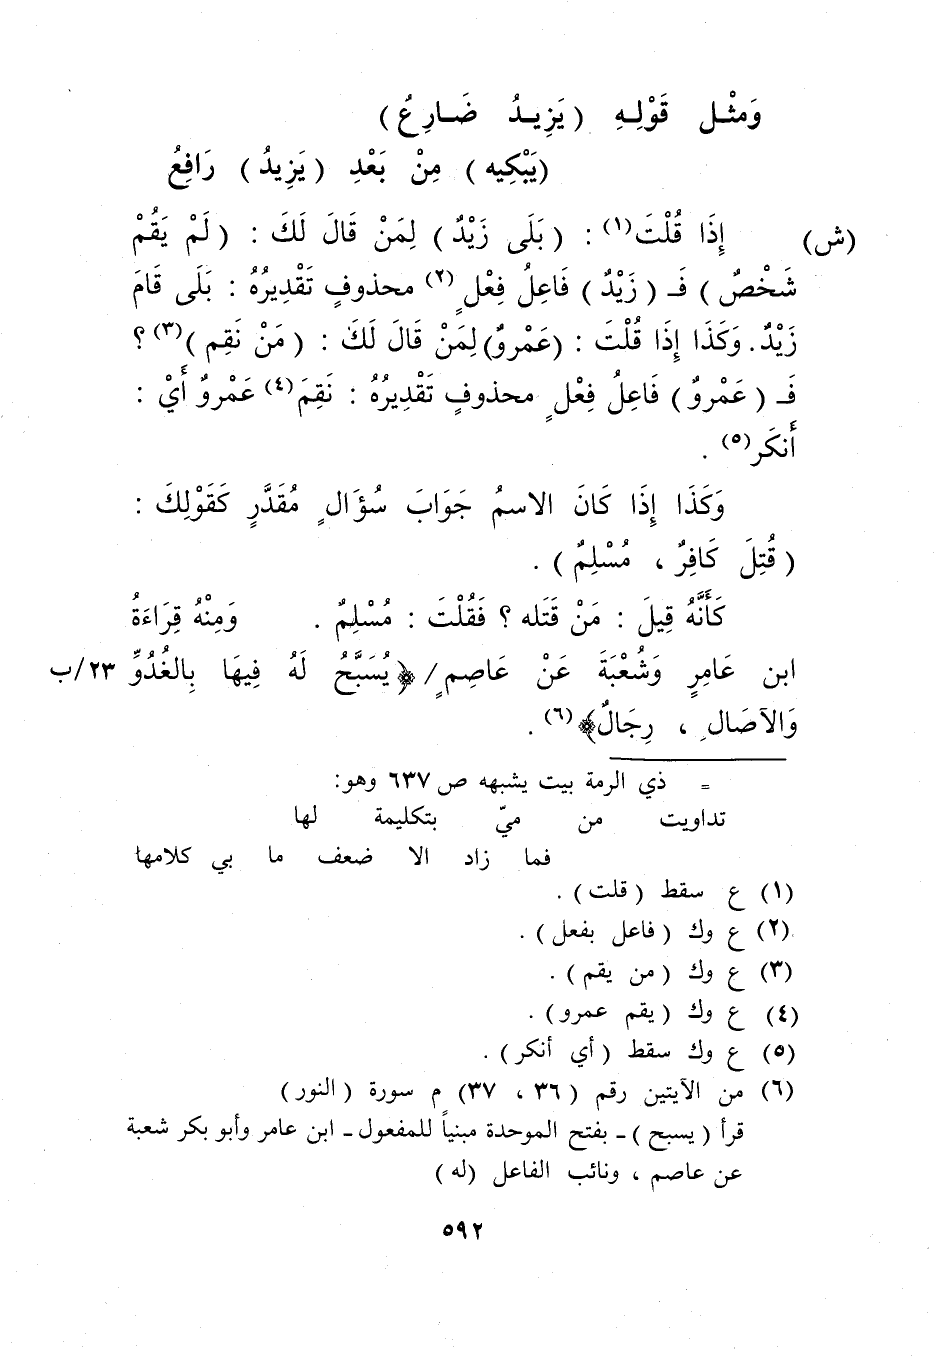 وَمثْـل قَوْلِـهِ ( يَزِيـدُ ضَـارِعُ )
(يَبْكِيه ) مِنْ بَعْدِ (يَزِيدُ ) رَافِعُ
(ش) إِذَا قُلْتَ(١) : ( بَلَى زَيْدٌ ) لِمَنْ قَالَ لَكَ : ( لَمْ يَقُمْ
شَخْصٌ ) فَـ ( زَيْدٌ ) فَاعِلُ فِعْلٍ(٢) محذوفٍ تَقْدِيرُهُ : بَلَى قَامَ
زَيْدٌ. وَكَذَا إِذَا قُلْتَ : (عَمْروٌ) لِمَنْ قَالَ لَكَ : ( مَنْ نَقِم )(٣) ؟
فَـ ( عَمْروٌ ) فَاعِلُ فِعْلٍ محذوفٍ تَقْدِيرُهُ : نَقِمَ(٤) عَمْروٌ أَيْ :
أَنكَر(٥) .
وَكَذَا إِذَا كَانَ الاسمُ جَوَابَ سُؤَالٍ مُقَدَّرٍ كَقَوْلِكَ :
( قُتِلَ كَافِرٌ ، مُسْلِمٌ ) .
كَأَنَّهُ قِيلَ : مَنْ قَتَله ؟ فَقُلْتَ : مُسْلِمٌ . وَمِنْهُ قِرَاءَةُ
ابن عَامِرٍ وَشُعْبَةَ عَنْ عَاصِمٍ / ﴿ يُسَبَّحُ لَهُ فِيهَا بِالغُدُوِّ ٢٣/ب
وَالآصَالِ ، رِجَالٌ﴾(٦) .
= ذي الرمة بيت يشبهه ص ٦٣٧ وهو:
تداويت من ميّ بتكليمة لها
فما زاد الا ضعف ما بي كلامها
(١) ع سقط ( قلت ) .
(٢) ع وك ( فاعل بفعل ) .
(٣) ع وك ( من يقم ) .
(٤) ع وك ( يقم عمرو ) .
(٥) ع وك سقط ( أي أنكر ) .
(٦) من الآيتين رقم ( ٣٦ ، ٣٧) م سورة ( النور )
قرأ ( يسبح ) ـ بفتح الموحدة مبنياً للمفعول ـ ابن عامر وأبو بكر شعبة
عن عاصم ، ونائب الفاعل (له )
٥٩٢